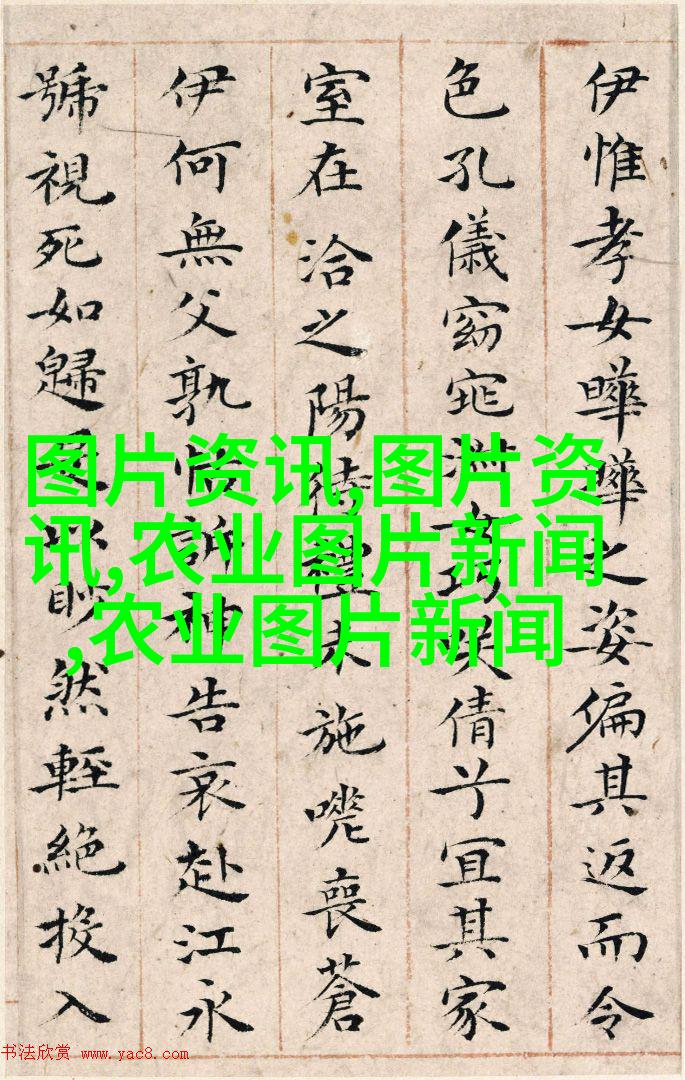 伊惟孝女曄曄之姿偏其返而令
色孔儀窈窕淑女巧咲倩兮宜其家
室在洽之陽待禮未施嗟喪蒼
伊何無父孰怙訴神告哀赴江永
號視死如歸是以眇然輕絕投入
图片资讯,图片资
讯,农业图片新闻
,农业图片新闻
书法欣赏 www.yac8.com